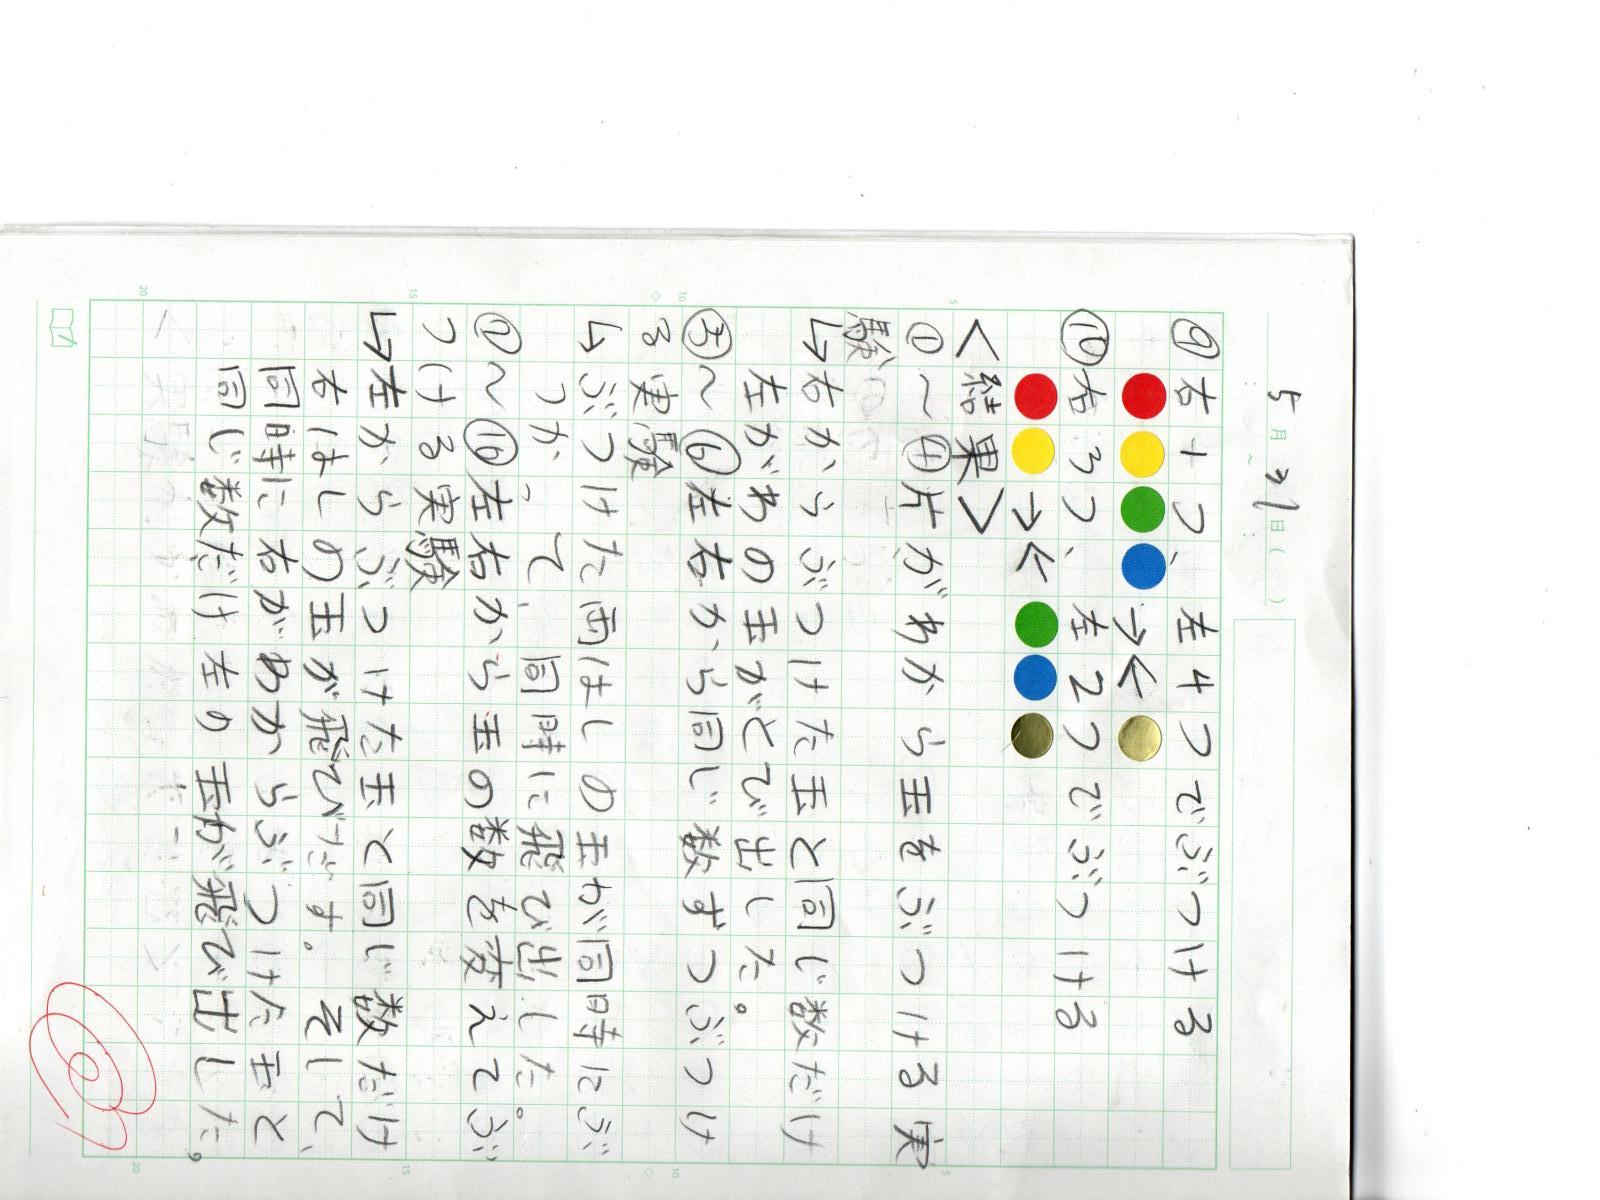 5月31日( )
⑨右1つ、左4つでぶつける
→←
⑩右3つ、左2つでぶつける
→←
<結果>
①～④片がわから玉をぶつける実
験
↳右からぶつけた玉と同じ数だけ
左がわの玉がとび出した。
⑤～⑥左右から同じ数ずつぶつけ
る実験
↳ぶつけた両はしの玉が同時にぶ
つかって、同時に飛び出した。
⑦～⑩左右から玉の数を変えてぶ
つける実験
↳左からぶつけた玉と同じ数だけ
右はしの玉が飛びだす。そして、
同時に右がわからぶつけた玉と
同じ数だけ左の玉が飛び出した。
5
10
15
20
5
10
15
20